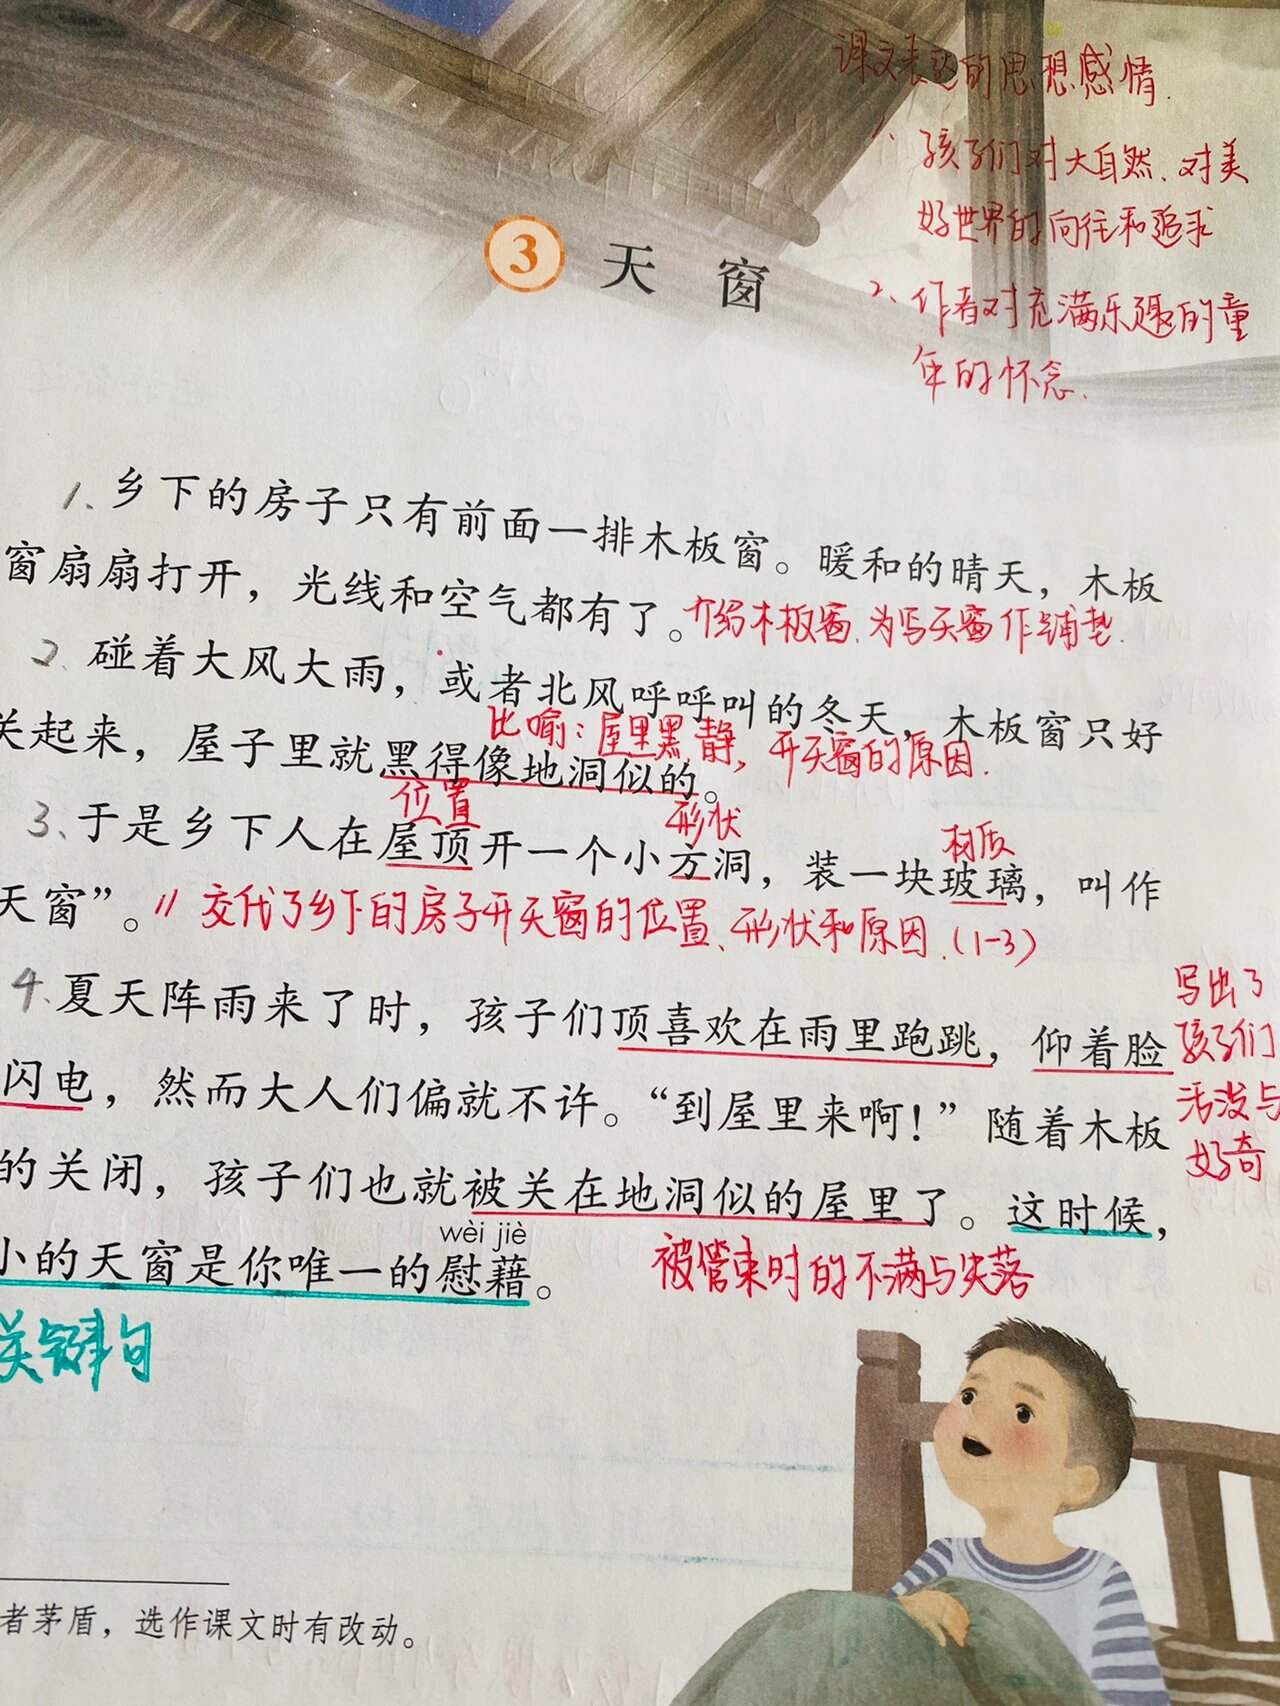 课文表达的思想感情.
1、孩子们对大自然、对美
好世界的向往和追求
2、作者对充满乐趣的童
年的怀念.
3 天窗
1、乡下的房子只有前面一排木板窗。暖和的晴天，木板
窗扇扇打开，光线和空气都有了。介绍木板窗、为写天窗作铺垫.
2、碰着大风大雨，或者北风呼呼叫的冬天，木板窗只好
比喻：屋里黑,静，开天窗的原因.
关起来，屋子里就黑得像地洞似的。
位置 形状 材质
3、于是乡下人在屋顶开一个小方洞，装一块玻璃，叫作
天窗”。// 交代了乡下的房子开天窗的位置、形状和原因.(1-3)
4、夏天阵雨来了时，孩子们顶喜欢在雨里跑跳，仰着脸
闪电，然而大人们偏就不许。“到屋里来啊！”随着木板
的关闭，孩子们也就被关在地洞似的屋里了。这时候，
wèi jiè
小的天窗是你唯一的慰藉。
写出了
孩子们
活泼与
好奇
被管束时的不满与失落
关键句
者茅盾，选作课文时有改动。